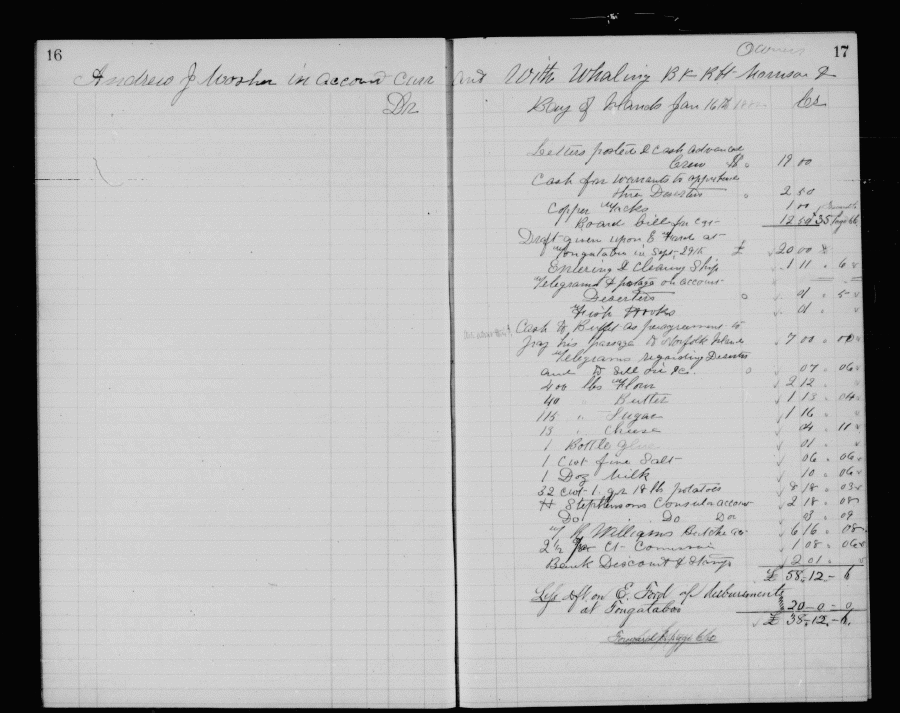 16
Andrew J Mosher in account Curr
Dr
Owners
17
and With Whaling Bk R H Morrison &
Bay of Islands Jan 16th
Cr
Letters posted & cash advanced
Crew $ 19 00
Cash for warrants to apprehend
three Deserters 2 50
Copper Tacks 1 00
Board bill for 12 50 35 Page 66
Draft given upon E Ford at
Tongatabu in Sept. 29th £ 20 00
Entering & Clearing Ship 1 11 6
Telegrams & postage on account
Deserters 01 5
Fish Hooks 01
Cash to as per agreement to
pay his passage to Norfolk Islands 7 00 00
Telegrams regarding Deserters
and to sell oil &c. 07 06
400 lbs Flour 2 12
40 " Butter 1 13 04
115 " Sugar 1 16
15 " Cheese 04 11
1 Bottle glue 01
1 Cwt fine Salt 06 06
1 Doz Milk 10 06
32 cwt 1 qr 18 lb potatoes 8 18 03
H Stephensons Consular account 2 18 08
Do Do Do 03 09
W R Williams Butcher acc 6 16 08
2 1/2 per Ct Commission 1 08 06
Bank Discount & Stamp 2 01
£ 58.12-6
Less dft. on E. Ford of disbursements
at Tongataboo 20-0-0
£ 38.12.-6.
Forward to page 66